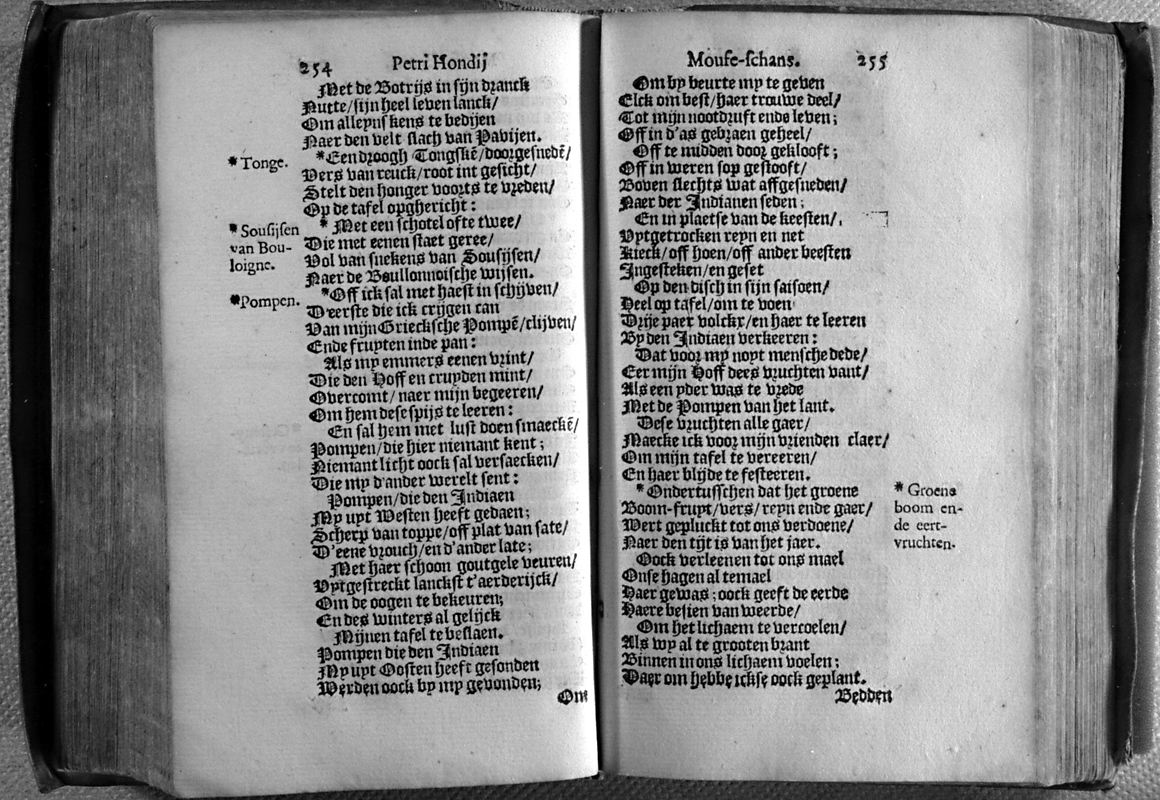 254 Petri Hondij
Met de Botrijs in sijn dranck
Nutte/sijn heel leven lanck/
Om alleynskens te bedijen
Naer den velt slach van Pavijen.
* Tonge.
*Een droogh Tongskē/doorgesnedē/
Vers van reuck/root int gesicht/
Stelt den honger voorts te vreden/
Op de tafel opghericht:
* Sousijsen
van Bou-
loigne.
* Met een schotel ofte twee/
Die met eenen staet geree/
Vol van snekens van Sousijsen/
Naer de Boullonnoische wijsen.
*Pompen.
*Off ick sal met haest in schijven/
D'eerste die ick crijgen can
Van mijn Griecksche Pompē/clijven/
Ende fruyten inde pan:
Als my emmers eenen vrint/
Die den Hoff en cruyden mint/
Overcomt/naer mijn begeeren/
Om hem dese spijs te leeren:
En sal hem met lust doen smaeckē/
Pompen/die hier niemant kent;
Niemant licht oock sal versaecken/
Die my d'ander werelt sent:
Pompen/die den Indiaen
My uyt Westen heeft gedaen;
Scherp van toppe/off plat van sate/
D'eene vrouch/en d'ander late;
Met haer schoon goutgele veuren/
Vytgestreckt lanckst t'aerderijck/
Om de oogen te bekeuren;
En des winters al gelijck
Mijnen tafel te beslaen.
Pompen die den Indiaen
My uyt Oosten heeft gesonden
Werden oock by my gevonden;
Om
Mouse-schans. 255
Om by beurte my te geven
Elck om best/haer trouwe deel/
Tot mijn nootdruft ende leven;
Off in d'as gebraen geheel/
Off te midden door geklooft;
Off in weren sop gestooft/
Boven slechts wat affgesneden/
Naer der Indianen seden;
En in plaetse van de keesten/
Vytgetrocken reyn en net
Kieck/off hoen/off ander beesten
Ingesteken/en geset
Op den disch in sijn saisoen/
Heel op tafel/om te voen
Drije paer volckx/en haer te leeren
By den Indiaen verkeeren:
Dat voor my noyt mensche dede/
Eer mijn Hoff dees vruchten vant/
Als een yder was te vrede
Met de Pompen van het lant.
Dese vruchten alle gaer/
Maecke ick voor mijn vrienden claer/
Om mijn tafel te vereeren/
En haer blijde te festeeren.
*Ondertusschen dat het groene
Boom-fruyt/vers/reyn ende gaer/
Wert gepluckt tot ons verdoene/
Naer den tijt is van het jaer.
* Groene
boom en-
de eert-
vruchten.
Oock verleenen tot ons mael
Onse hagen al temael
Haer gewas; oock geeft de eerde
Haere besien van weerde/
Om het lichaem te vercoelen/
Als wy al te grooten brant
Binnen in ons lichaem voelen;
Daer om hebbe ickse oock geplant.
Bedden